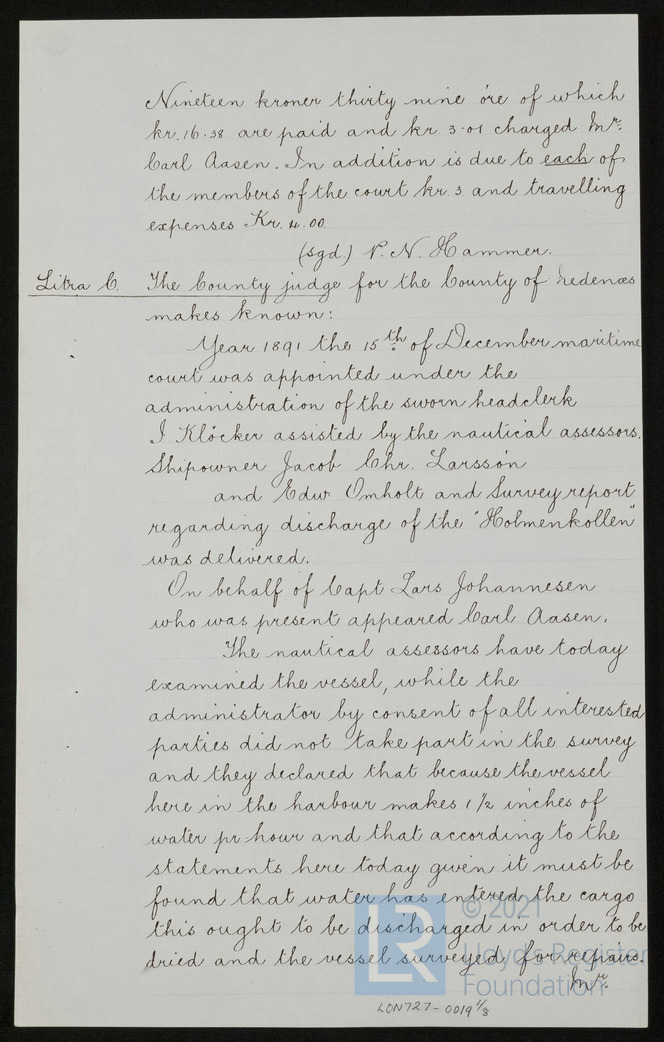 Nineteen kroner thirty nine öre of which
kr. 16.38 are paid and kr 3.01 charged Mr.
Carl Aasen. In addition is due to each of
the members of the court kr 3 and travelling
expenses Kr. 4.00.
(sgd.) P. N. Hammer.
Litra C. The County judge for the County of Nedenæs
makes known:
Year 1891 the 15th of December maritime
court was appointed under the
administration of the sworn headclerk
I Klöcker assisted by the nautical assessors.
Shipowner Jacob Chr. Larsson
and Edw Omholt and Survey report
regarding discharge of the "Holmenkollen"
was delivered.
On behalf of Capt Lars Johannesen
who was present appeared Carl Aasen.
The nautical assessors have today
examined the vessel, while the
administrator by consent of all interested
parties did not take part in the survey
and they declared that because the vessel
here in the harbour makes 1 1/2 inches of
water pr hour and that according to the
statements here today given it must be
found that water has entered the cargo
this ought to be discharged in order to be
dried and the vessel surveyed for repairs.
Mr.
LR
© 2021
Lloyd's Register
Foundation
LON727-0019 1/8